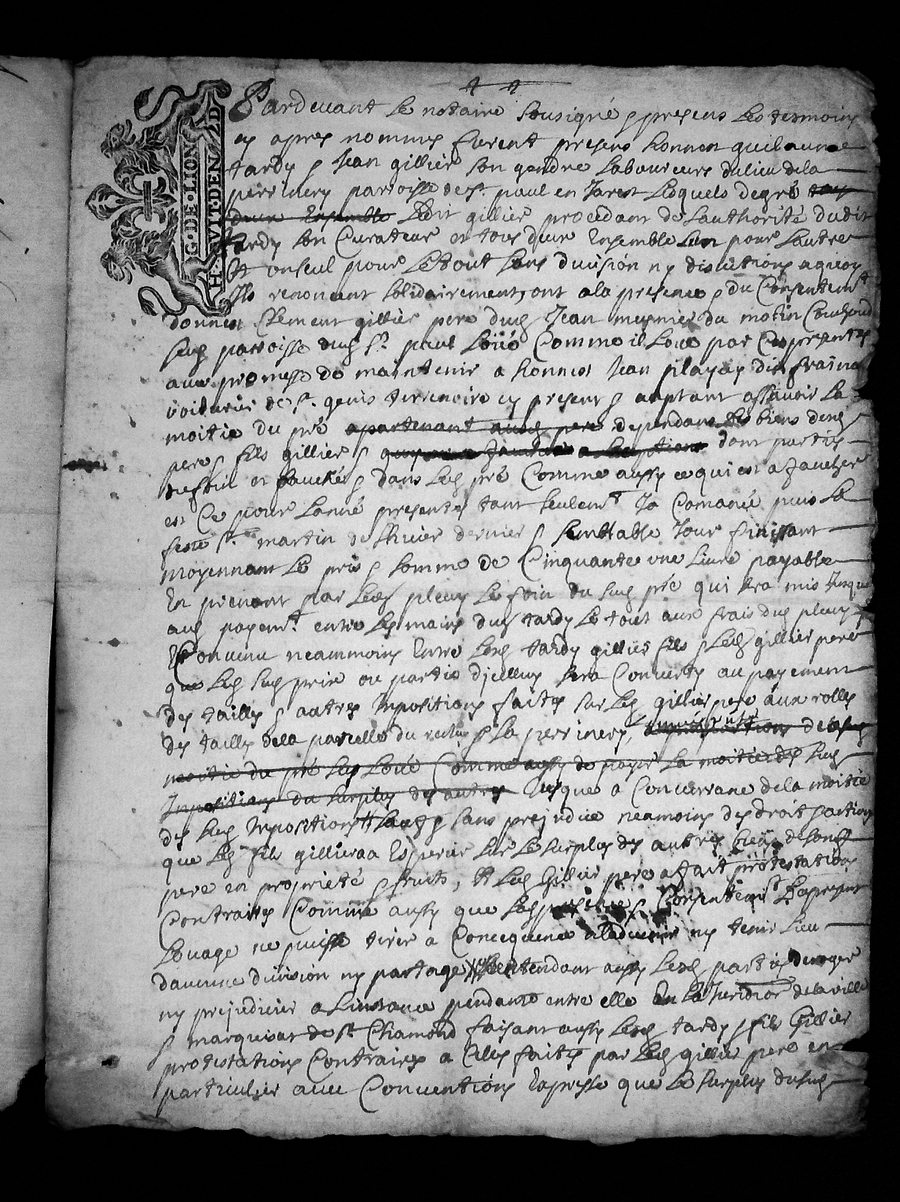 G·DE·LION
H·VIT·DEN· D
Pardevant Le notaire sousigné & presens Les tesmoins
cy apres nommes furent presens honnete guilaume
tardy & Jean gillier son gendre Laboureurs du lieu de la
perriniery parroisse de St. paul en Jarest Lesquels de gré
Ensemble Ledit gillier procedant de Lauthorité dudit
tardy son Curateur et tous deux Ensemble Lun pour Lautre
Et un seul pour Le tout sans division ny discutions a quoy
Ils renoncent solidairement, ont a la presence & du Consentemt
donnest Clement gillier pere dud Jean mesmier du
susd parroisse dud St. paul Loüé Comme il Loue par Ces presentes
avec promesse de maintenir a honnest Jean playas dit
voiturier de St. genis terrenoire cy present & aceptant assavoir La
moitie du pré apartenant dependant des biens desd
pere & fils gillier & dont partie
du foin et fauchés dans Led pré Comme aussy ce qui est a faucher
et Ce pour Lanné presente tant seulemt. Ja Comancé puis La
feste St. martin de Lhiver dernier & semblable Jour finissant
moyennant Le pris & somme de Cinquante une Livre payable
En prenant par Led playas Le foin du susd pré qui sera mis Jusques
aud payemt. entre Les mains dud tardy Le tout aux frais dud playas
Et Convenu neammoins Entre Lesd tardy gillier fils & Led gillier pere
que Led susd prix ou partie dJcelluy sera Converty au payement
des tailles & autres Impositions faites sur Led gillier pere aux rolles
des tailles de la parcelle du & La perriniery de lad
moitié du pré sus Loué Comme aussy de payer La moitié des susd
Impositions du surplus des autres Jusques a Concurrane de la moitié
des susd Impositions & sans prejudice neamoins des droits & actions
que Led fils gillier a a Esperer sur Le surplus des autres biens de sond
pere en proprieté & fruits, Led Gillier pere a fait protestations
Contraires Comme aussy que Led & Consentemt. Le present
Louage ne puisse tirer a Concequence ny tenir Lieu
daucune division ny partage nentendant aussy Lesd parties deroger
ny prejudicier a Linstance pendante entre elle En La Juridion de la ville
& marquisat de St Chamond faisant aussy Lesd tardy & fils Gillier
protestations Contraires a Celles faites par Led gillier pere en
particulier avec Conventions Expresse que Le surplus du susd